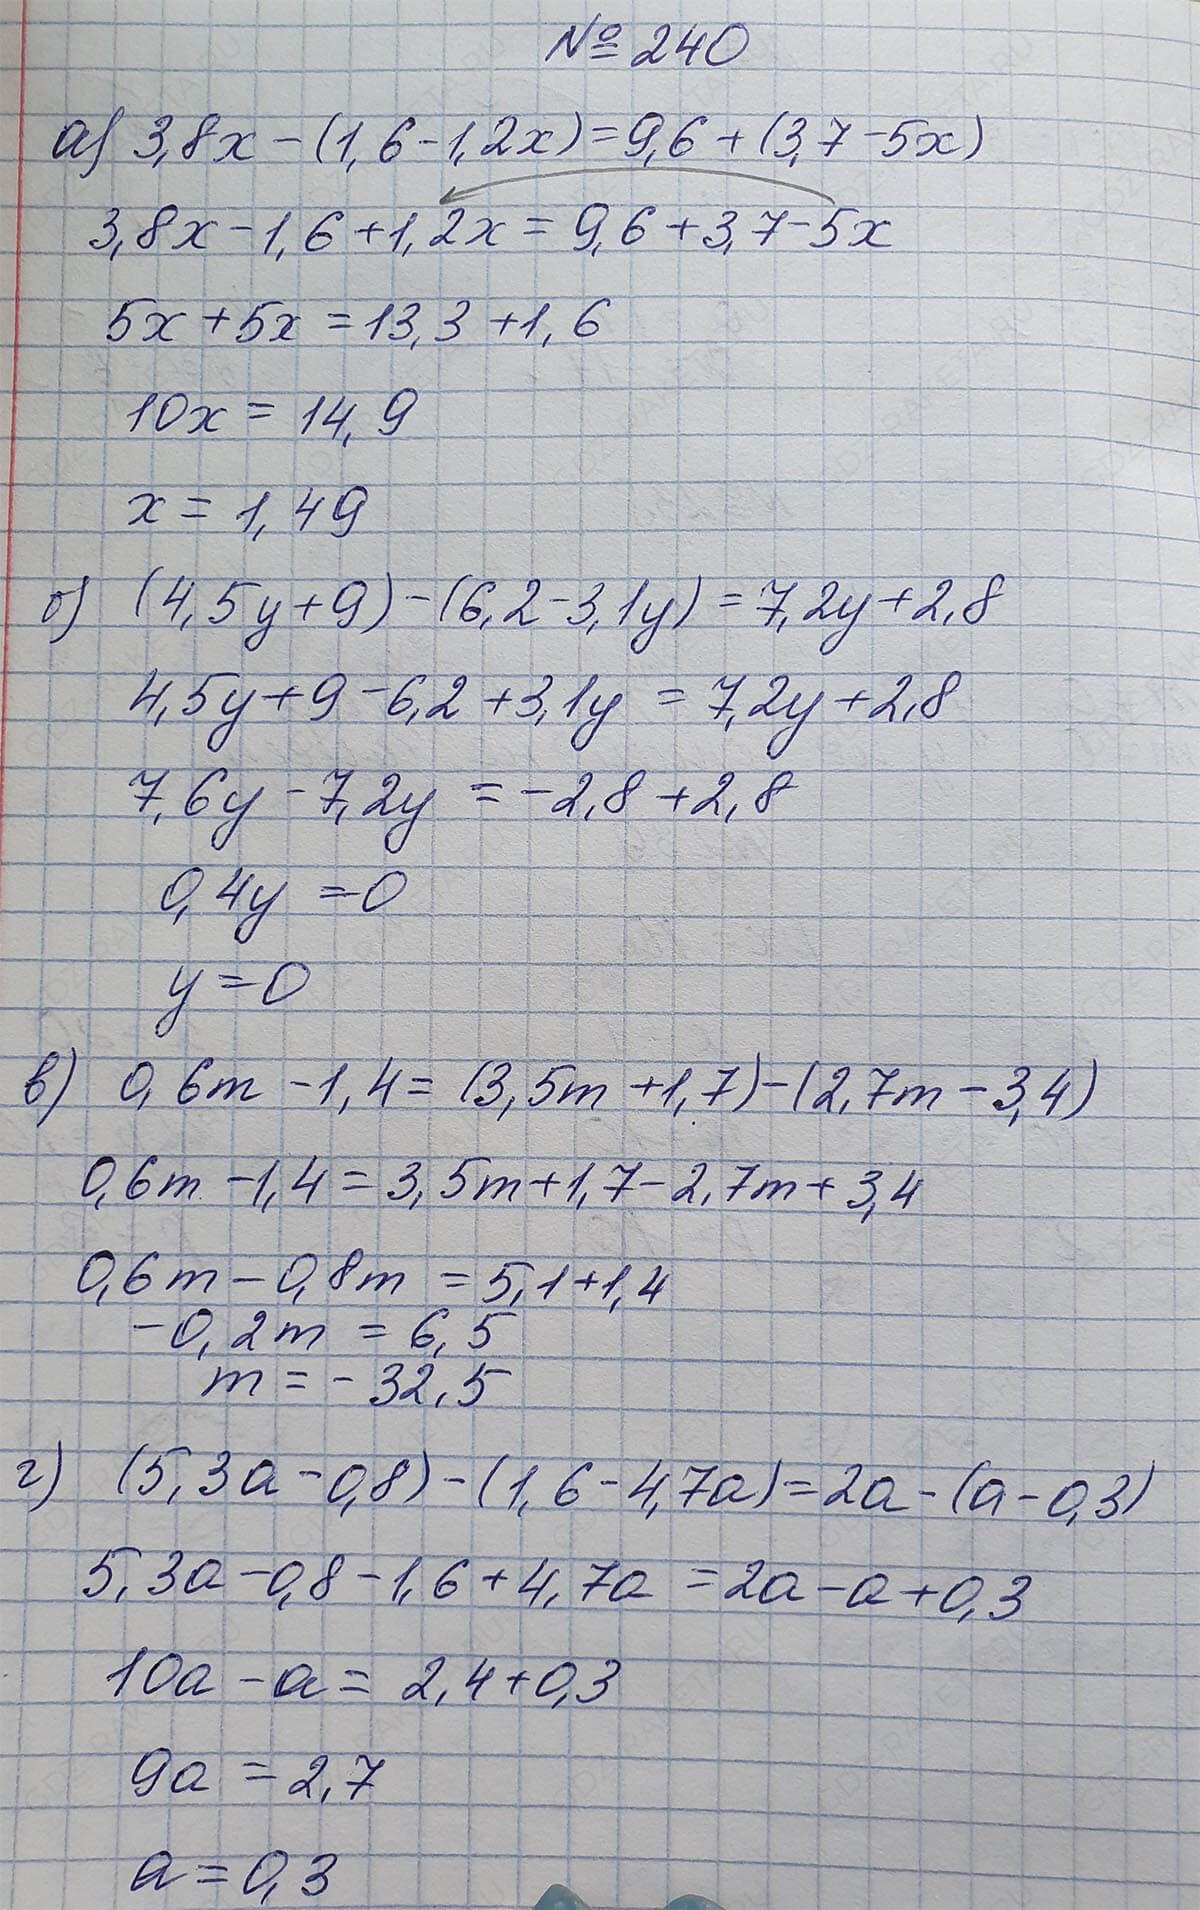 № 240
а) 3,8x - (1,6 - 1,2x) = 9,6 + (3,7 - 5x)
3,8x - 1,6 + 1,2x = 9,6 + 3,7 - 5x
5x + 5x = 13,3 + 1,6
10x = 14,9
x = 1,49
б) (4,5y + 9) - (6,2 - 3,1y) = 7,2y + 2,8
4,5y + 9 - 6,2 + 3,1y = 7,2y + 2,8
7,6y - 7,2y = -2,8 + 2,8
0,4y = 0
y = 0
в) 0,6m - 1,4 = (3,5m + 1,7) - (2,7m - 3,4)
0,6m - 1,4 = 3,5m + 1,7 - 2,7m + 3,4
0,6m - 0,8m = 5,1 + 1,4
-0,2m = 6,5
m = -32,5
г) (5,3a - 0,8) - (1,6 - 4,7a) = 2a - (a - 0,3)
5,3a - 0,8 - 1,6 + 4,7a = 2a - a + 0,3
10a - a = 2,4 + 0,3
9a = 2,7
a = 0,3